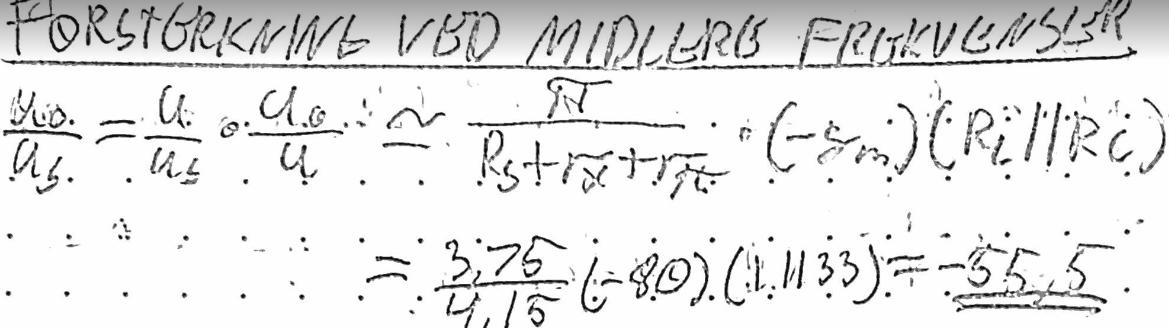 FORSTERKNING VED MIDLERE FREKVENSER
uo/us = u/us · uo/u ≃ π/(Rs+rx+rπ) · (-gm)(RL||RC)
= 3,75/4,15 (-80)(1.1133) = -55,5